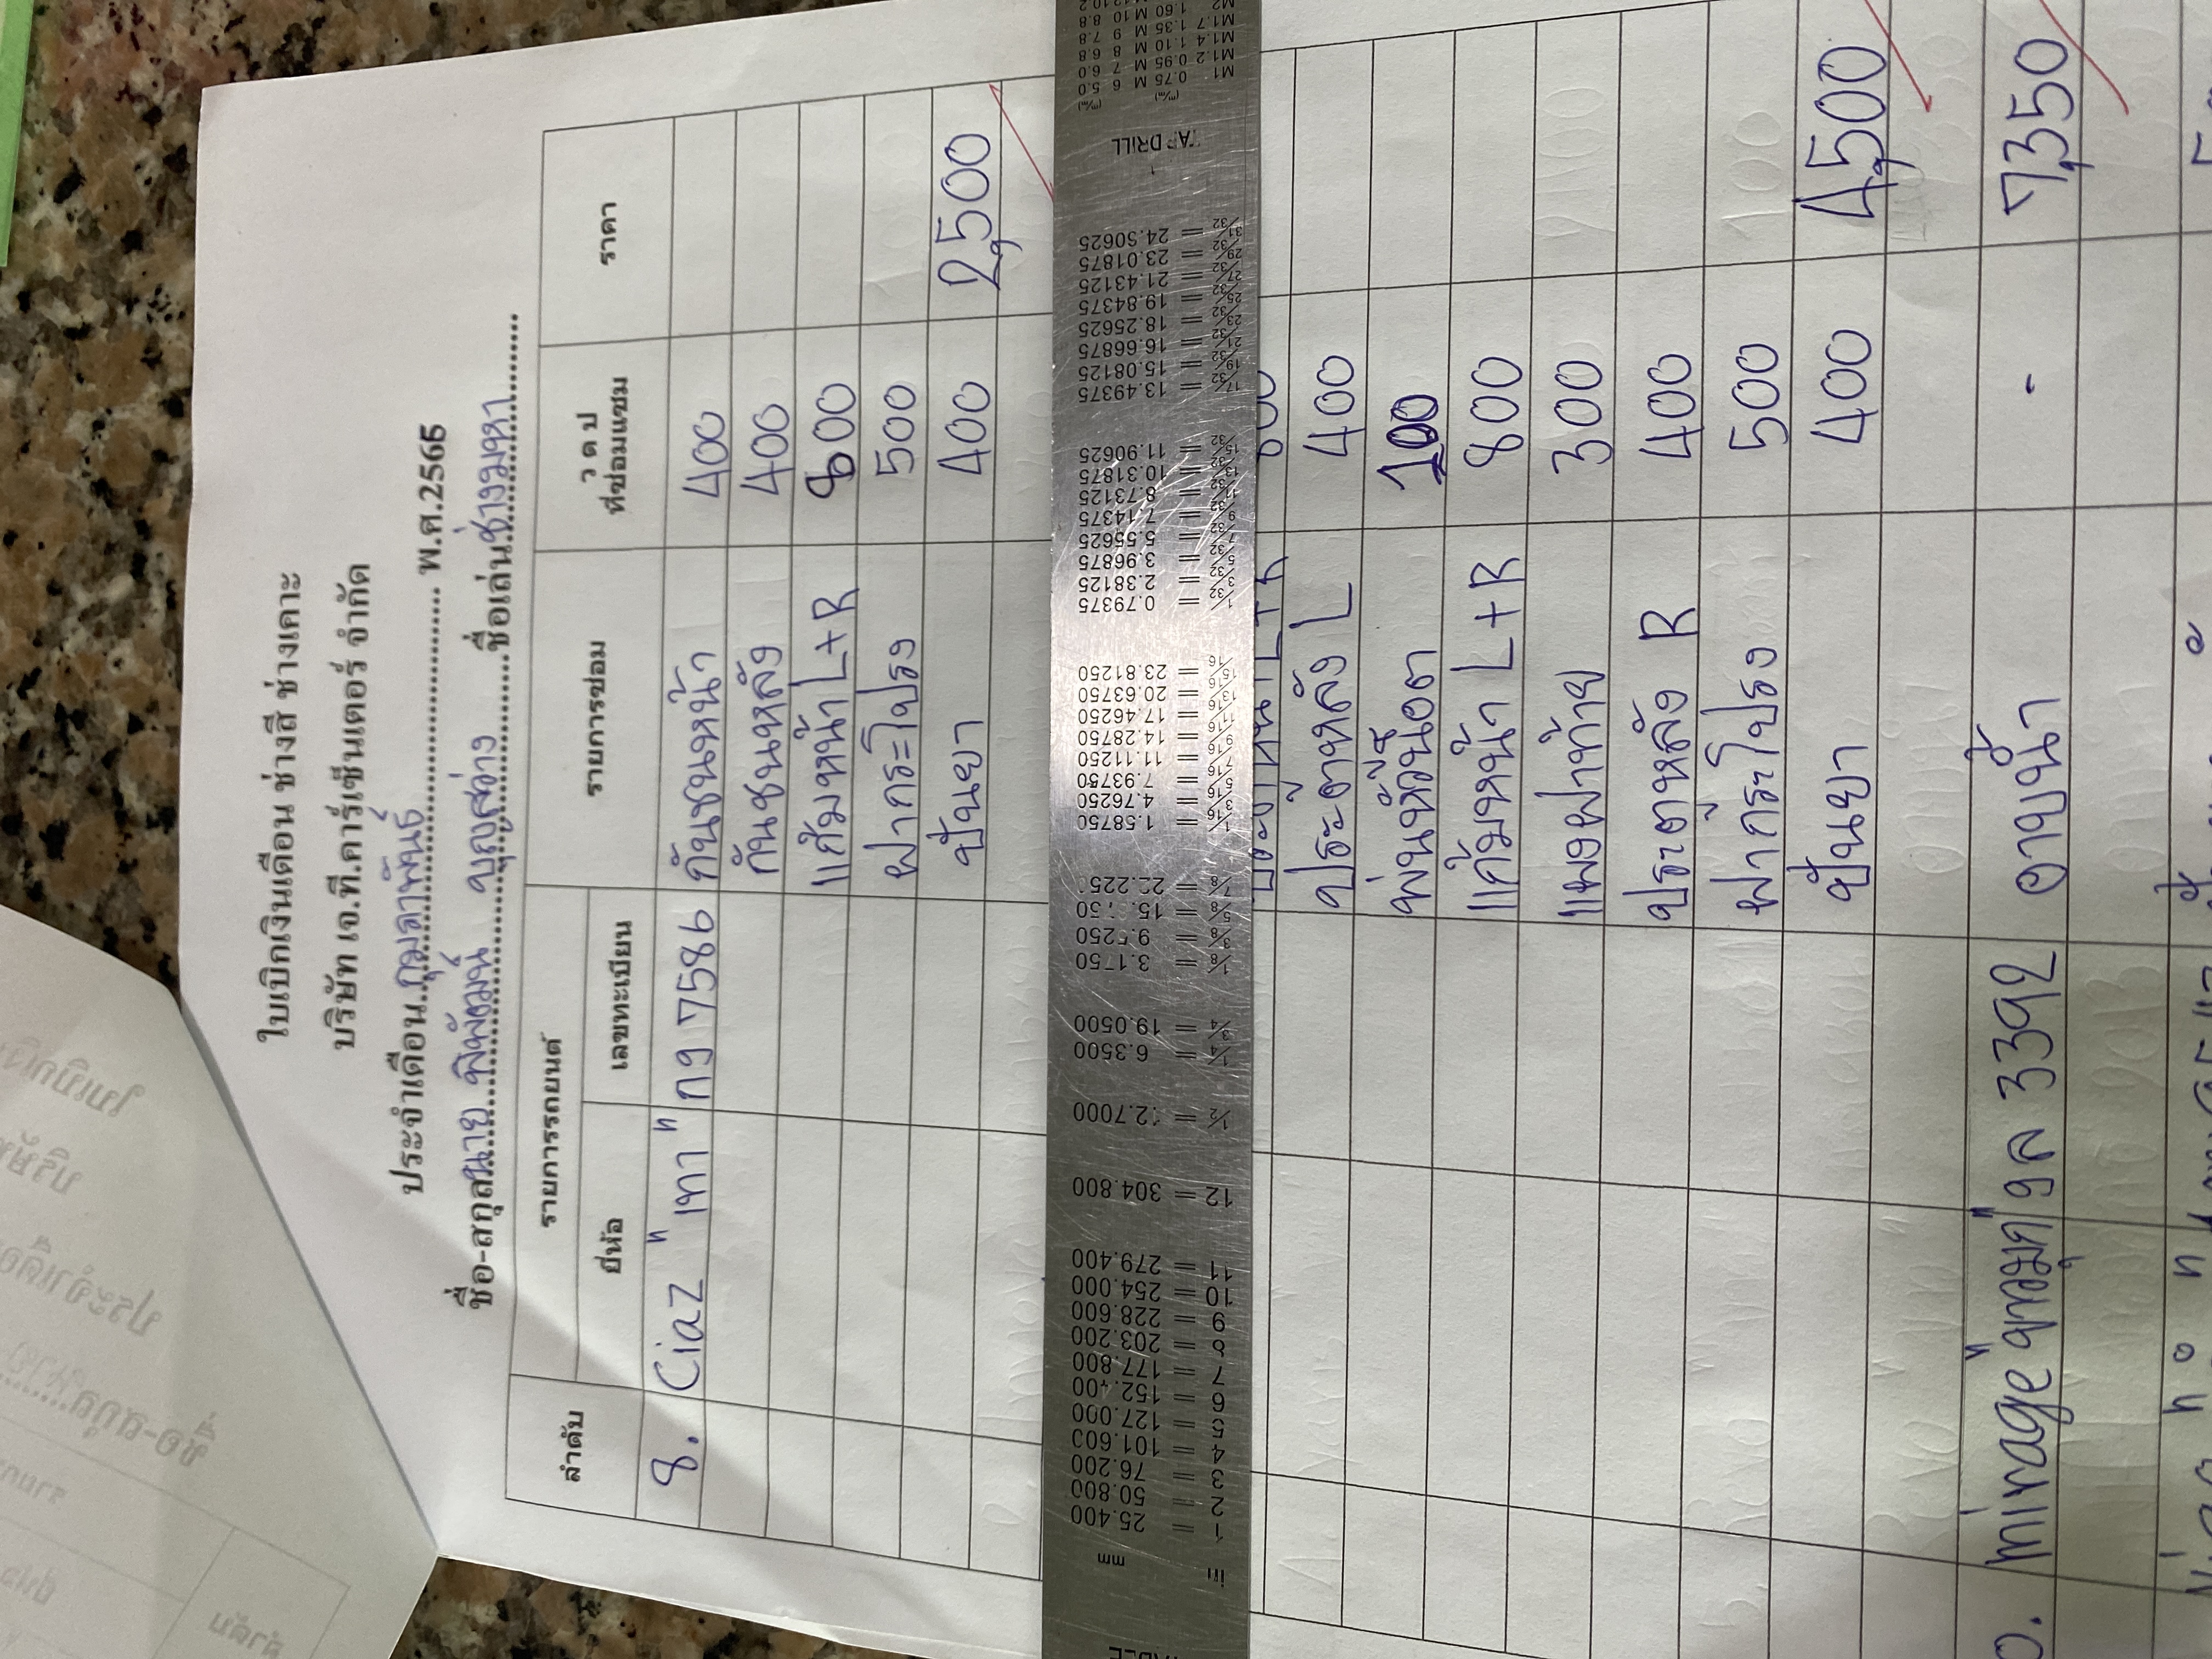 ใบเบิกเงินเดือน ช่างสี ช่างเคาะ
บริษัท เจ.ที.คาร์เซ็นเตอร์ จำกัด
ประจำเดือน กุมภาพันธ์ พ.ศ.2565
ชื่อ-สกุล นาย บุญสว่าง ชื่อเล่น ช่างมหา
ลำดับ รายการรถยนต์ รายการซ่อม ว ด ป ที่ซ่อมแซม ราคา
ยี่ห้อ เลขทะเบียน
8. Ciaz "เทา" กว 7586 กันชนหน้า 400
กันชนหลัง 400
แก้มหน้า L+R 800
ฝากระโปรง 500
ปั้นยา 400 2,500
ประตูหลัง L 400
100
แก้มหน้า L+R 800
แผงฝาท้าย 300
ประตูหลัง R 400
ฝากระโปรง 500
ปั้นยา 400 4,500
mirage "ขาวมุก" 3392 อาบน้ำ - 7,350
in mm
1 = 25.400
2 = 50.800
3 = 76.200
4 = 101.600
5 = 127.000
6 = 152.400
7 = 177.800
8 = 203.200
9 = 228.600
10 = 254.000
11 = 279.400
12 = 304.800
1/2 = 12.7000
1/4 = 6.3500
3/4 = 19.0500
1/8 = 3.1750
3/8 = 9.5250
1/16 = 1.58750
3/16 = 4.76250
5/16 = 7.93750
7/16 = 11.11250
9/16 = 14.28750
11/16 = 17.46250
13/16 = 20.63750
15/16 = 23.81250
1/32 = 0.79375
3/32 = 2.38125
5/32 = 3.96875
7/32 = 5.55625
9/32 = 7.14375
11/32 = 8.73125
13/32 = 10.31875
15/32 = 11.90625
17/32 = 13.49375
19/32 = 15.08125
21/32 = 16.66875
23/32 = 18.25625
25/32 = 19.84375
27/32 = 21.43125
29/32 = 23.01875
31/32 = 24.60625
DRILL
M1 0.75 M 6 5.0
M1.2 0.95 M 7 6.0
M1.4 1.10 M 8 6.8
M1.7 1.35 M 9 7.8
M2 1.60 M 10 8.8